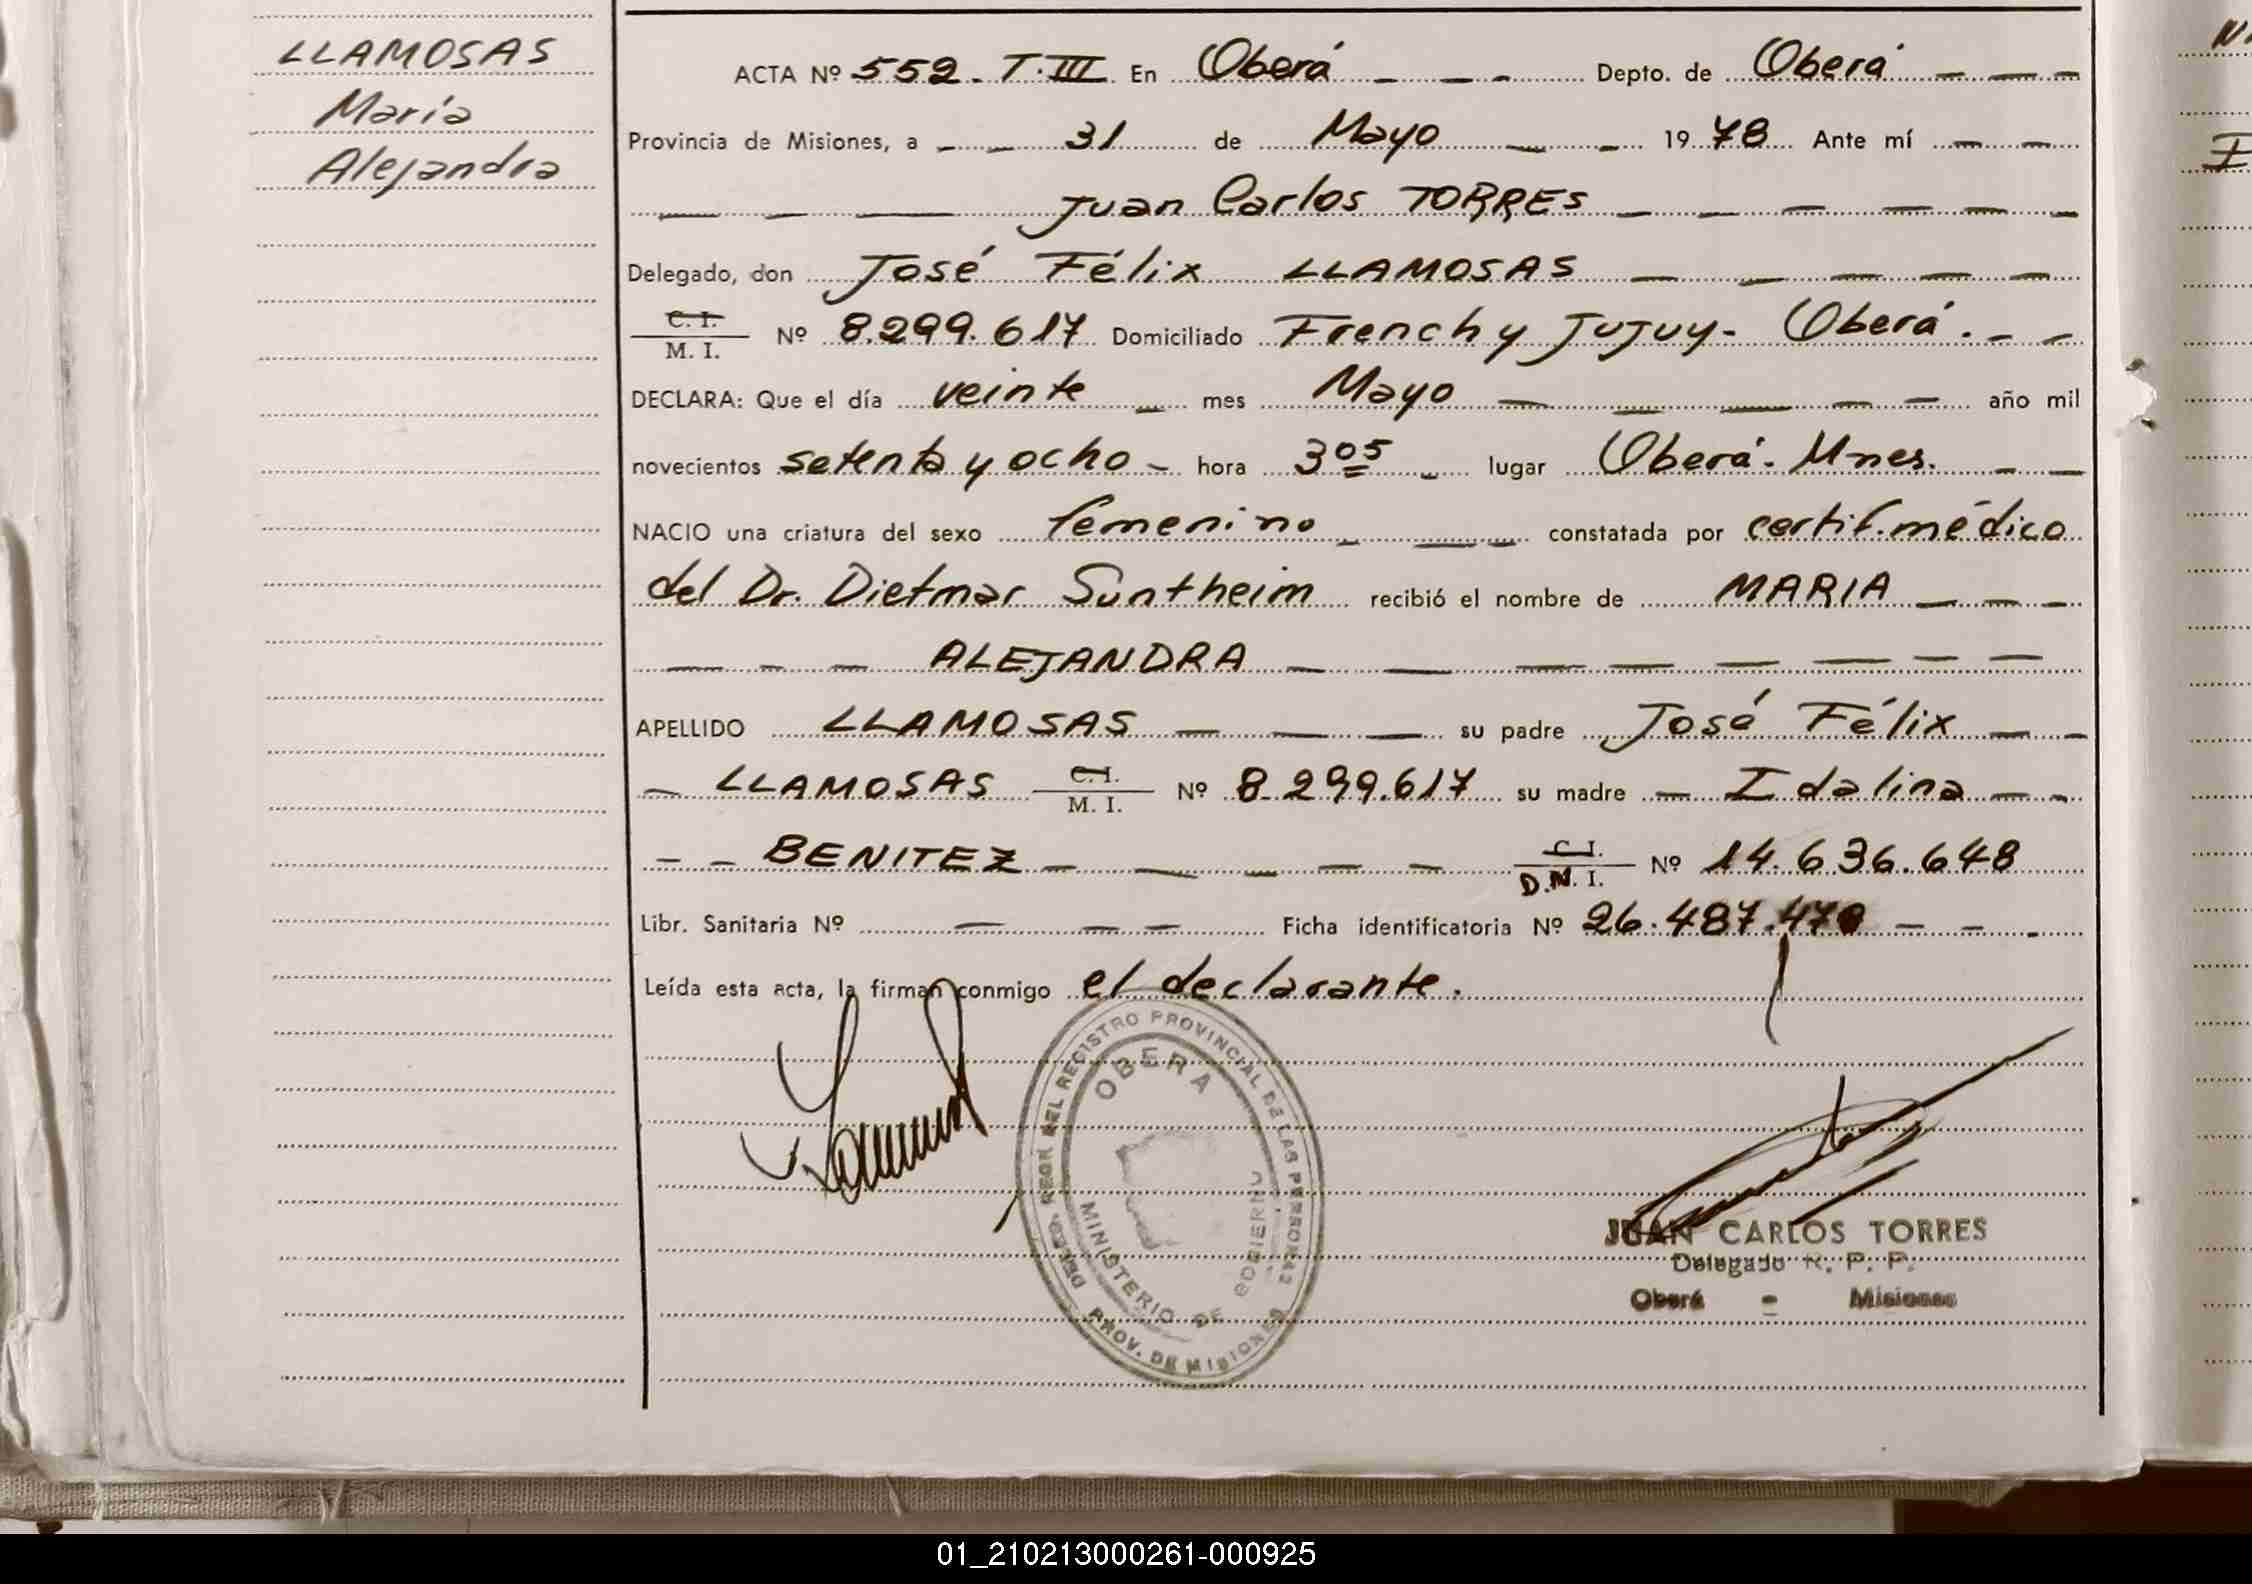 LLAMOSAS
María
Alejandra
ACTA Nº 552. T. III En Oberá Depto. de Oberá
Provincia de Misiones, a 31 de Mayo 1978 Ante mí
Juan Carlos TORRES
Delegado, don José Félix LLAMOSAS
C. I.
M. I. Nº 8.299.617 Domiciliado French y Jujuy - Oberá.
DECLARA: Que el día veinte mes Mayo año mil
novecientos setenta y ocho hora 3 05 lugar Oberá. Mnes.
NACIO una criatura del sexo femenino constatada por certif. médico
del Dr. Dietmar Suntheim recibió el nombre de MARIA
ALEJANDRA
APELLIDO LLAMOSAS su padre José Félix
LLAMOSAS C. I. M. I. Nº 8.299.617 su madre Idalina
BENITEZ C. I. D.N.I. Nº 14.636.648
Libr. Sanitaria Nº Ficha identificatoria Nº 26.487.
Leída esta acta, la firman conmigo el declarante.
DEL REGISTRO PROVINCIAL DE LAS PERSONAS
OBERA
MINISTERIO DE GOBIERNO
PROV. DE MISIONES
JUAN CARLOS TORRES
Delegado R. P. P.
Oberá - Misiones
01_210213000261-000925